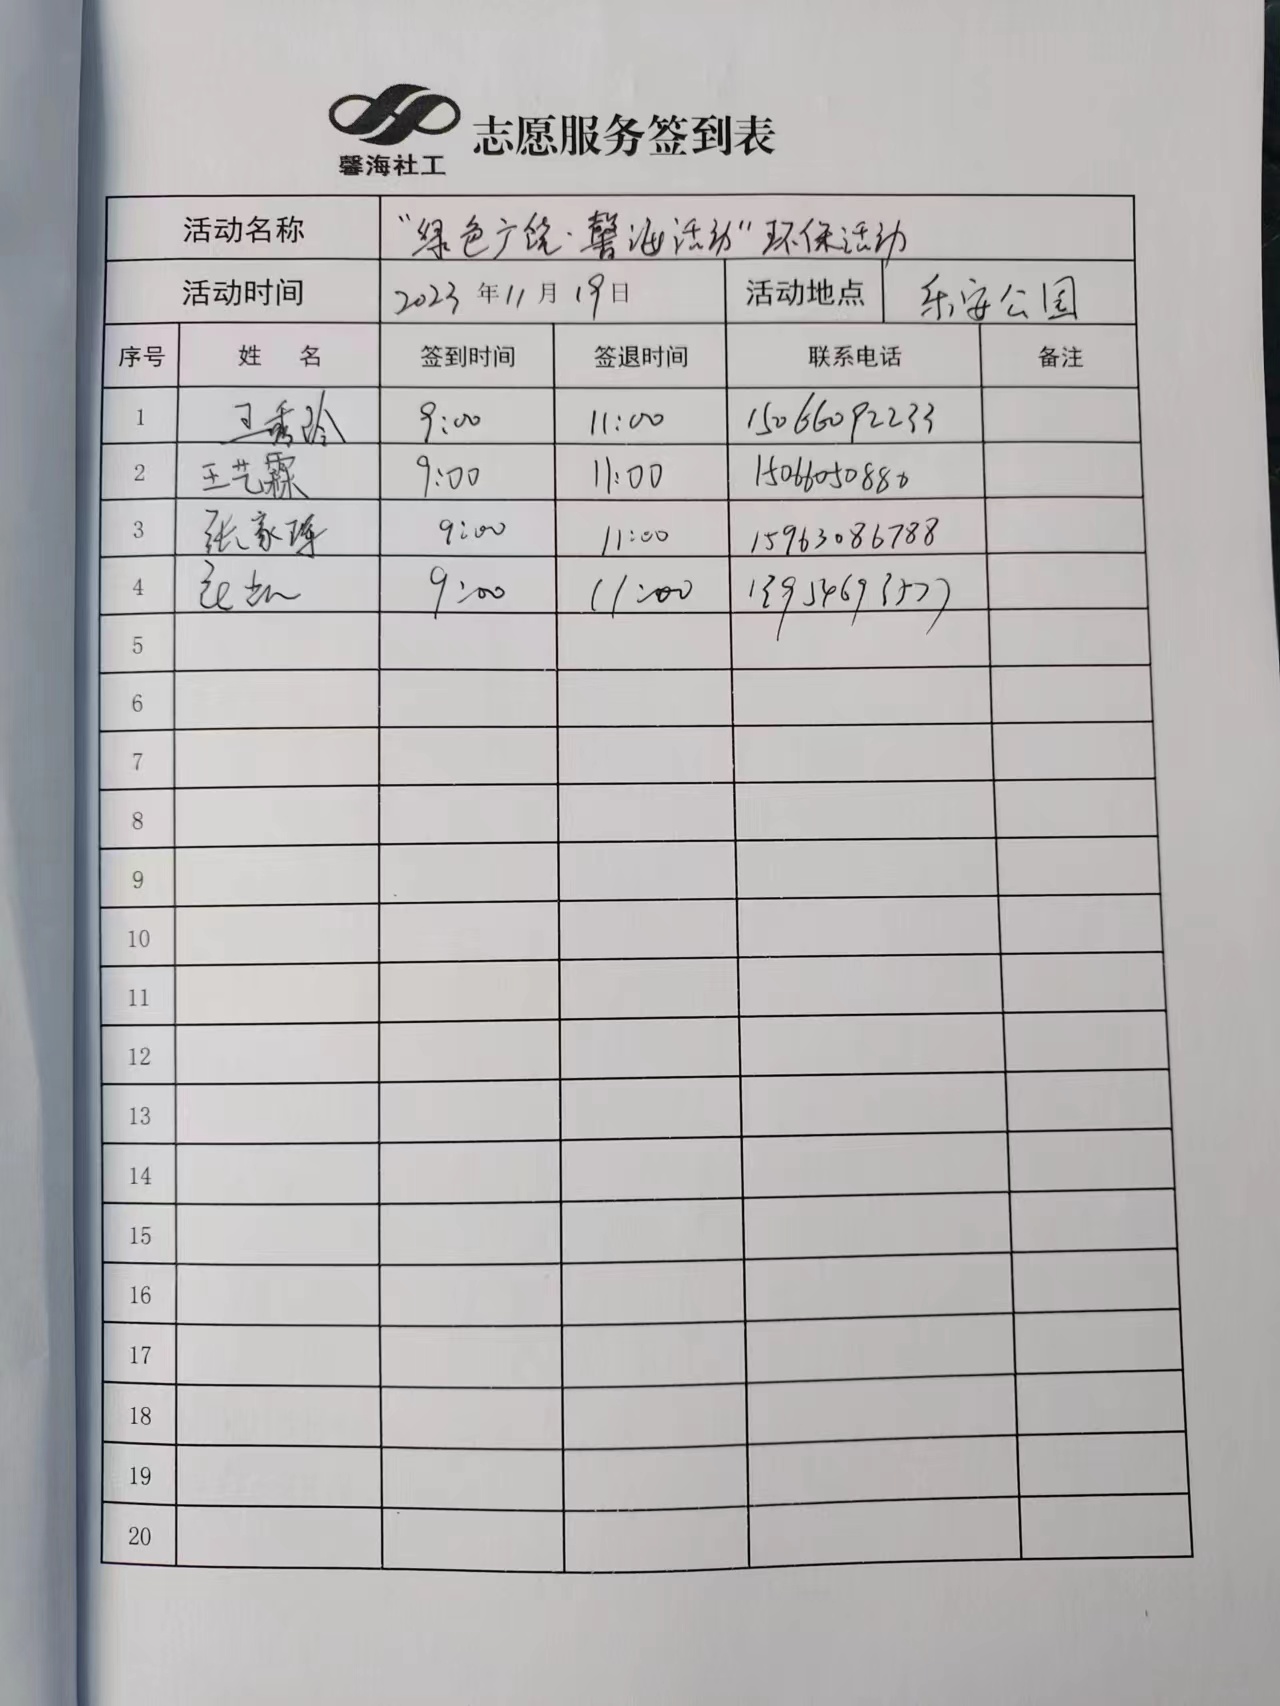 馨海社工
志愿服务签到表
活动名称 "绿色广饶·馨海活动"环保活动
活动时间 2023年11月19日 活动地点 乐安公园
序号 姓 名 签到时间 签退时间 联系电话 备注
1 王秀玲 9:00 11:00 15066092233
2 王艺霖 9:00 11:00 15066050880
3 张家 9:00 11:00 15963086788
4 9:00 11:00
5
6
7
8
9
10
11
12
13
14
15
16
17
18
19
20